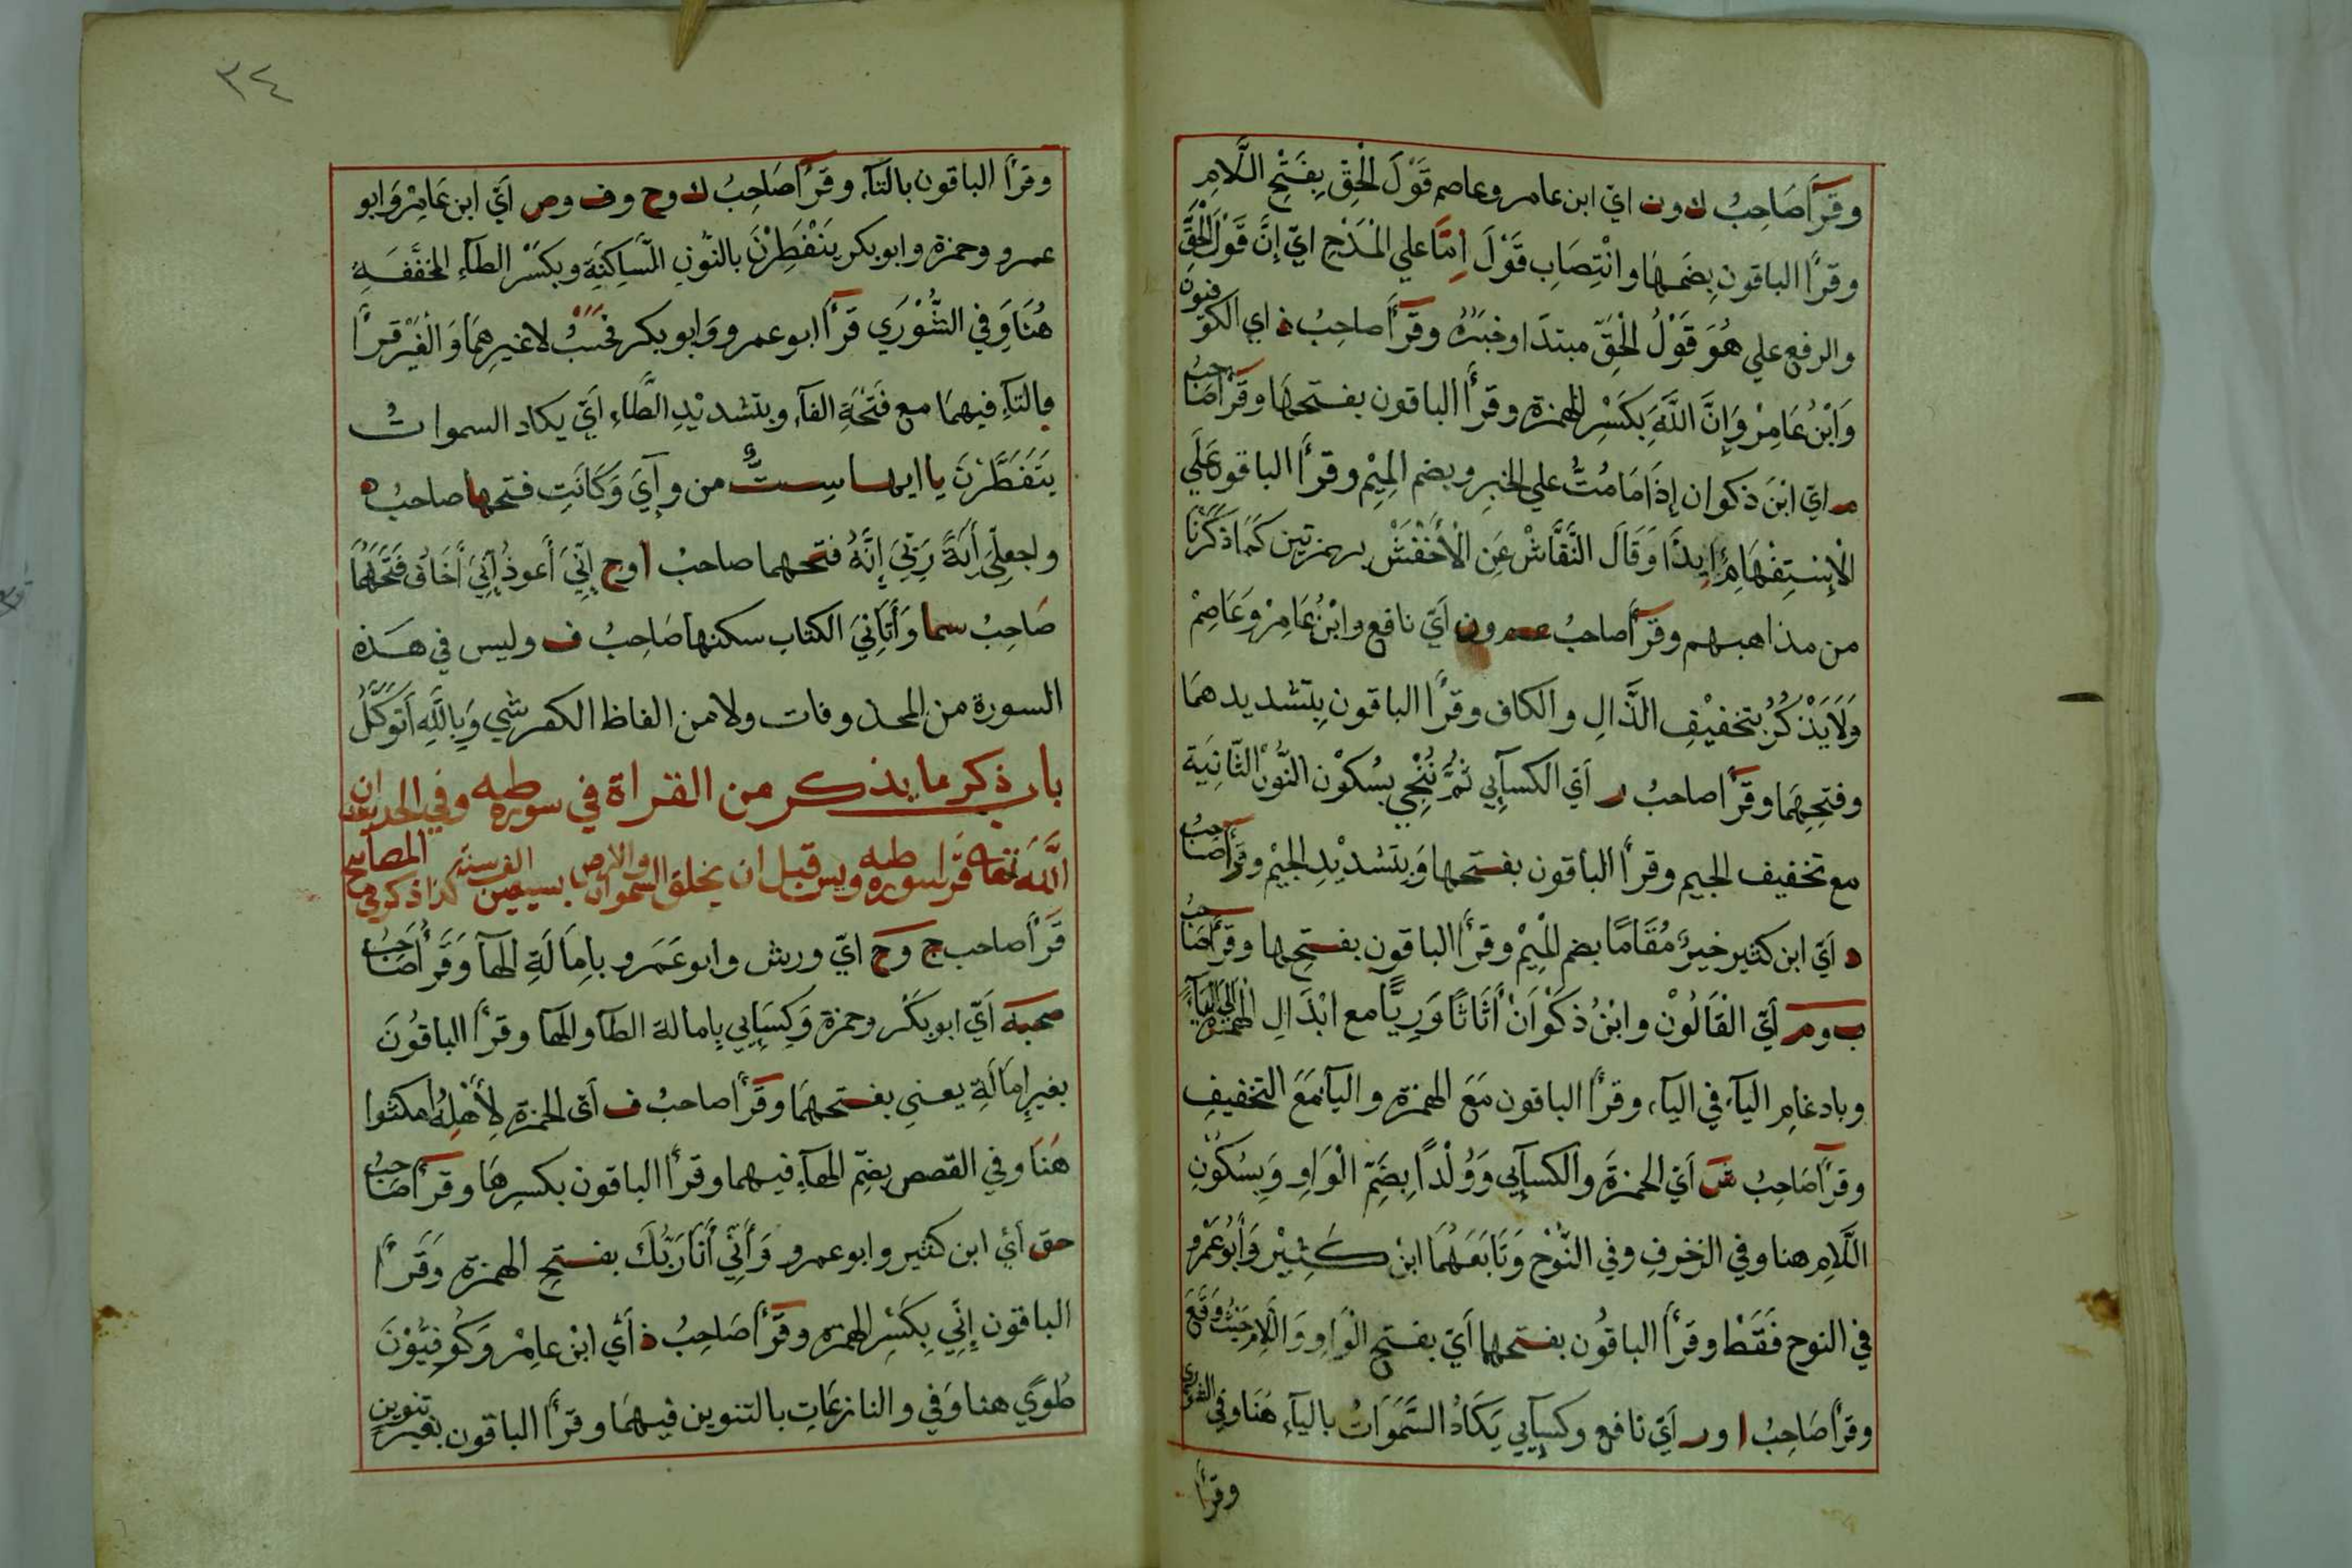 وقرأ صَاحِبُ ك ون ايّ ابن عامر وعاصم قَوْلَ الْحَقِّ بِفَتْحِ اللَّامِ
وقرأ الباقون بِضَمِّهَا وانْتِصَابِ قَوْلَ اِمَّا علي الْمَدْحِ ايّ إنَّ قَوْلَ الْحَقِّ
والرفع علي هُوَ قَوْلُ الْحَقِّ مبتدَا وخبَرُهُ وقرأ صاحِبُ ذ اي الكوفيون
وَابْنُ عَامِرْ وَإِنَّ اللَّهَ بِكَسْرِ الهمزة وقرأ الباقون بفتحها وقرأ صَاحبُ
م ايّ ابْنَ ذكوان إِذَا مَا مُتُّ علي الخبرِ وبضم الْمِيْم وقرأ الباقون عَلَي
الْإِسْتِفْهَامِ ايذَا وَقَالَ النَّقَّاشْ عَنِ الْأَخْفَشْ بهمزتين كَمَا ذَكَرْنَا
من مذاهبهم وقرأ صاحبُ عم ون ايّ نافع وابْنُ عَامِرْ وَعَاصِمْ
وَلَا يَذْكُرُ بتخفيْفِ الذَّالِ والكاف وقرأ الباقون بِتشديدهمَا
وفتحِهِمَا وقرأ صاحبُ ر أيّ الكسآيي ثُمَّ نُنْجِي بسُكوْن النُّوْن الثَّانِيَة
مع تخفيف الجيم وقرأ الباقون بفتحها وَبِتشدْيْدِ الجيْم وقرأ صَاحبُ
د أيّ ابن كثير خيرٌ مُقَامًا بضم الْمِيْمِ وقرأ الباقون بفتحِها وقرأ صَاحبُ
ب وم أيّ الْقَالُوْن وابْنُ ذَكْوَانْ أَثَاثًا وَرِيًّا مع ابْدَالِ الْهمزة الي اليآء
وبادغامِ اليآء في اليآء وقرأ الباقون مَعَ الهمزة واليآء مَعَ التخفيفِ
وقرأ صَاحِبُ ش أيّ الحمزةَ والكسآيي وَوُلْدًا بِضَمِّ الْوَاوِ وَبِسُكُوْنِ
اللَّامِ هنا وفي الزخرفِ وفي النُّوْحْ وَتَابَعَهُمَا ابْن كَثِيْر وَأَبُوعَمْرو
في النوح فَقَطْ وقرأ الباقُون بفتحهما أيّ بفتح الْوَاوِ وَاللَّامِ حَيْثُ وَقَعَ
وقرأ صَاحِبُ ا ور أيّ نافع وكسآيي يَكَادُ السَّمَوَاتُ باليآءِ هُنَا وفي
وقرأ
٣٤
وقرأ الباقون بالتآء وقرأ صَاحِبُ ك وح وف وص أيّ ابن عَامِرْ وَابو
عمرو وحمزة وابوبكر يَنْفَطِرْنَ بالنُّوْنِ السَّاكِنَةِ وبكسْر الطآءِ المخفَّفَةِ
هُنَا وَفِي الشُّوْرَي قرأ ابوعمرو وَابوبكر فَحَسْبُ لا غيرِهمَا وَالْغَيْرُ قرأ
بالتآءِ فيهمَا مع فَتْحَةِ الفآء وبتشديْدِ الطَّاءِ أيّ يكاد السموات
يَتَفَطَّرْنَ ياايها سِتٌّ من وآيَ وَكَانَتِ فتحها صاحبُ ه
واجعل لّيَ آيَةً رَبّيَ إنَّهُ فتحهما صاحبُ ا وح إنّيَ أَعوذُ إنّيَ أَخَافُ فَتَحَهُمَا
صَاحِبُ سما وَأَتَانِيَ الكتاب سكنها صَاحِبُ ف وليس في هَذه
السورة من المحذوفات ولا من الفاظ الكفر شي وَبِاللَّهِ أَتَوَكَّلُ
باب ذكر ما يذكر من القراة في سورة طه وفي الحديث ان
اللَّهَ تعا قرأ سورة طه ويس قبل ان يخلق السموات والارض بسبعين الف سنة كذا ذكر في المصابيح
قرأ صاحب ج وح ايّ ورش وابوعَمَرو بِامَالَةِ الهآ وَقَرأ صَاحبُ
صحبة أيّ ابوبَكْر وحمزة وَكِسَآيي بِامالة الطآ والهآ وقرأ الباقُونَ
بغيرِ إمَالَةِ يعني بفتحهمَا وقرأ صاحبُ ف أيّ الحمزة لِأَهْلِهُ امكثوا
هَنَا وفي القصص بضِّم الهآءِ فيهما وقرأ الباقون بكسرِهَا وقرأ صَاحبُ
حق أيّ ابن كثير وابوعمرو وَأَنِّي أَنَا رَبُّكَ بفتح الهمزة وَقَرأ
الباقون إِنِّي بِكَسْرِ الهمزة وقرأ صَاحِبُ ذ أيّ ابْن عامِرْ وَكُوفِيُّوْنَ
طُوًي هنا وَفي والنازعَاتِ بالتنوين فيهمَا وقرأ الباقون بغير تنوين